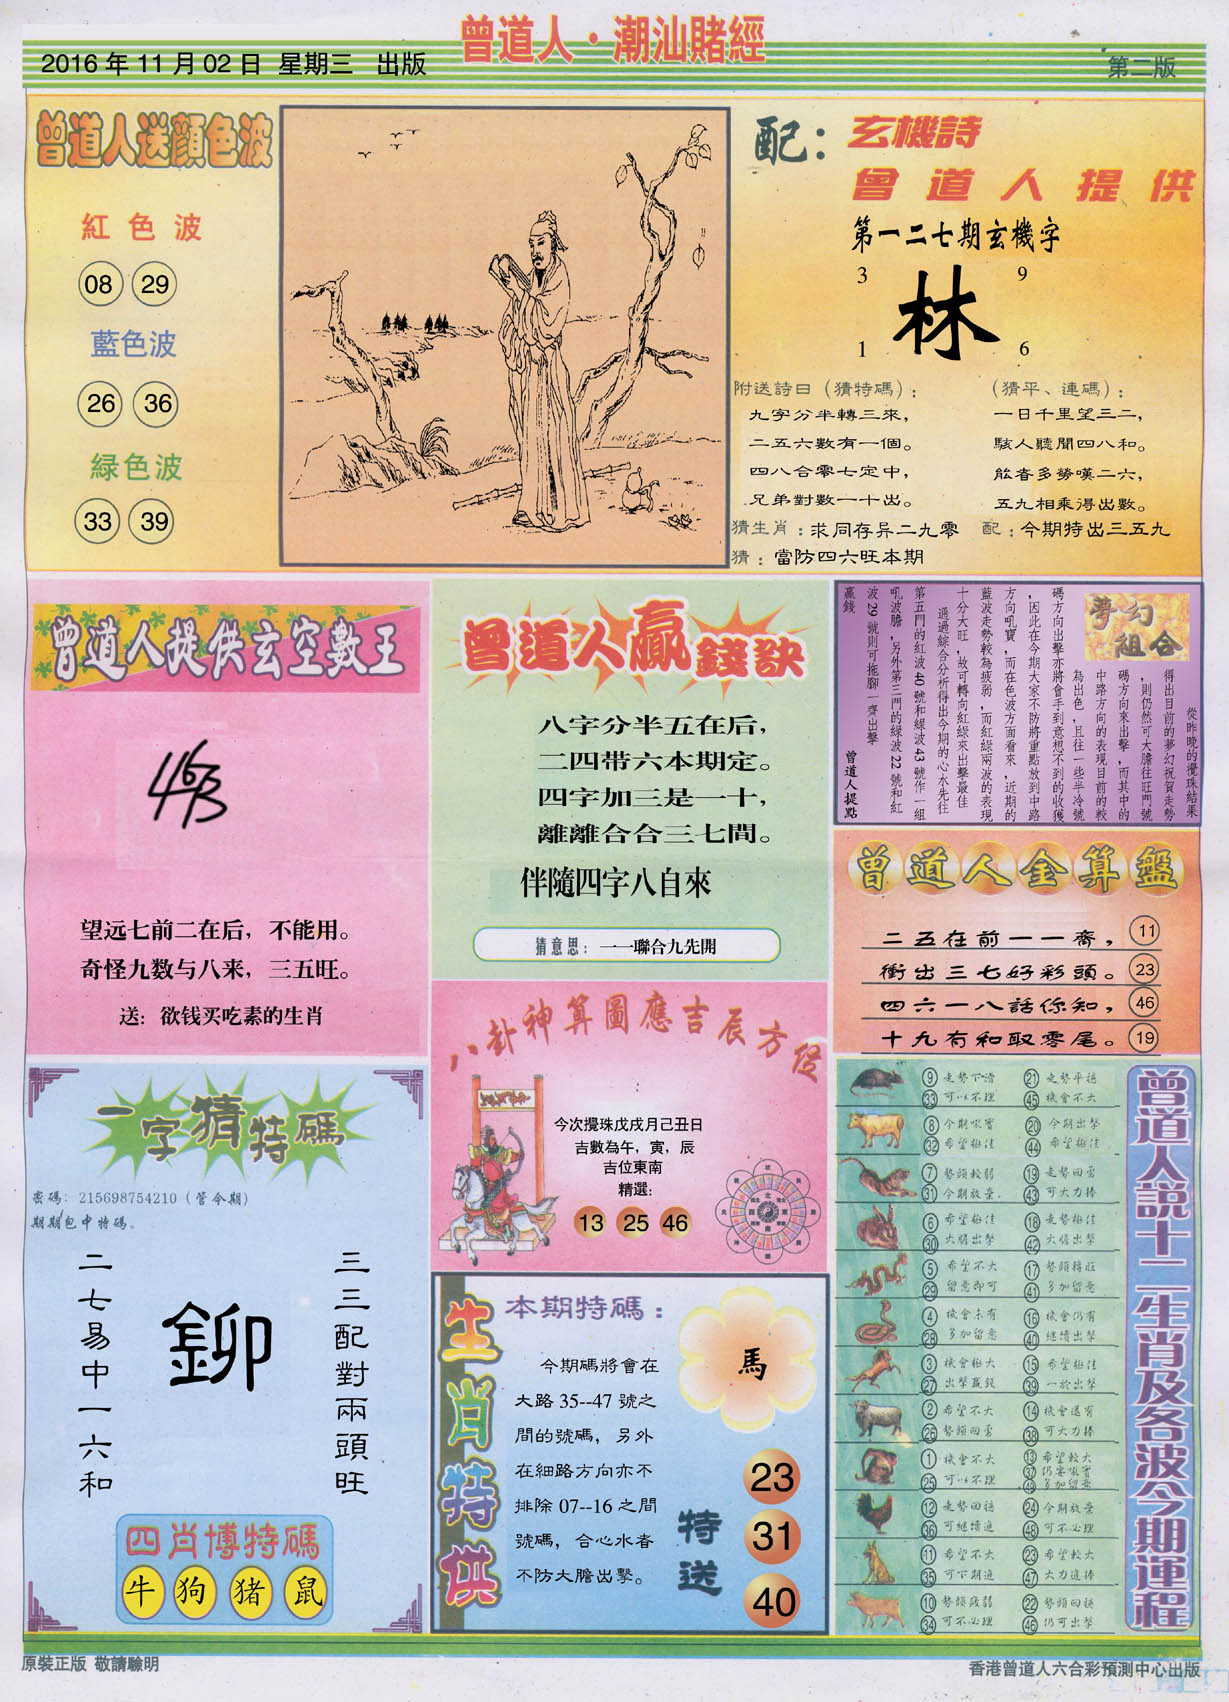 曾道人·潮汕賭經
2016年11月02日 星期三 出版
第二版
曾道人送顏色波
紅色波
08 29
藍色波
26 36
緑色波
33 39
配：玄機詩
曾道人提供
第一二七期玄機字
3 9
林
1 6
附送詩曰（猜特碼）：
九字分半轉三來，
二五六數有一個。
四八合零七定中，
兄弟對數一十出。
（猜平、連碼）：
一日千里望三二，
駭人聽聞四八和。
能者多勞嘆二六，
五九相乘得出數。
猜生肖：求同存异二九零
配：今期特出三五九
猜：當防四六旺本期
曾道人提供玄空數王
463
望远七前二在后，不能用。
奇怪九数与八来，三五旺。
送：欲钱买吃素的生肖
曾道人贏錢訣
八字分半五在后，
二四带六本期定。
四字加三是一十，
離離合合三七間。
伴隨四字八自來
猜意思：一一聯合九先開
夢幻
組合
從昨晚的攪珠結果
得出目前的夢幻祝賀走勢
，則仍然可大膽往旺門號
碼方向來出擊，而其中的
中路方向的表現目前的較
為出色，且往一些半冷號
碼方向出擊亦將會手到意想不到的收獲
，因此在今期大家不防將重點放到中路
方向吼寶，而在色波方面看來，近期的
藍波走勢較為疲弱，而紅緑兩波的表現
十分大旺，故可轉向紅緑來出擊最佳
通過綜合分析得出今期的心水先往
第五門的紅波40號和緑波43號作一組
吼波膽，另外第三門的緑波22號和紅
波29號則可拖腳一齊出擊
贏錢
曾道人提點
曾道人金算盤
二五在前一一齋，11
衝出三七好彩頭。23
四六一八話你知，46
十九有和取零尾。19
八卦神算圖應吉辰方位
今次攪珠戊戌月己丑日
吉數為午，寅，辰
吉位東南
精選:
13 25 46
一字猜特碼
密碼：215698754210（管今期）
期期包中特碼。
三三配對兩頭旺
鉚
二七易中一六和
四肖博特碼
牛 狗 猪 鼠
生肖特供
本期特碼：
馬
今期碼將會在
大路35--47號之
間的號碼，另外
在細路方向亦不
排除07--16之間
號碼，合心水者
不防大膽出擊。
特送
23
31
40
曾道人説十二生肖及各波今期運程
9 走勢下滑 21 走勢平穩
33 可以不理 45 機會不大
8 今期吸寶 20 今期出擊
32 希望極佳 44 希望極佳
7 勢頭較弱 19 走勢回勇
31 今期放棄 43 可大力捧
6 希望極佳 18 走勢極佳
30 大膽出擊 42 大膽出擊
5 希望不大 17 勢頭轉旺
29 留意即可 41 多加留意
4 機會未有 16 機會仍有
28 多加留意 40 繼續出擊
3 機會極大 15 希望極佳
27 出擊贏錢 39 一於出擊
2 希望不大 14 機會還有
26 勢頭回勇 38 可大力捧
1 機會不大 13 希望較大
25 可以不理 37 仍要吸寶
49 多加留意
12 走勢回穩 24 今期放棄
36 可繼續追 48 可不必理
11 希望不大 23 希望較大
35 可下期追 47 大力追捧
10 勢頭疲弱 22 勢頭回穩
34 可不必理 46 仍可出擊
原裝正版 敬請驗明
香港曾道人六合彩預測中心出版